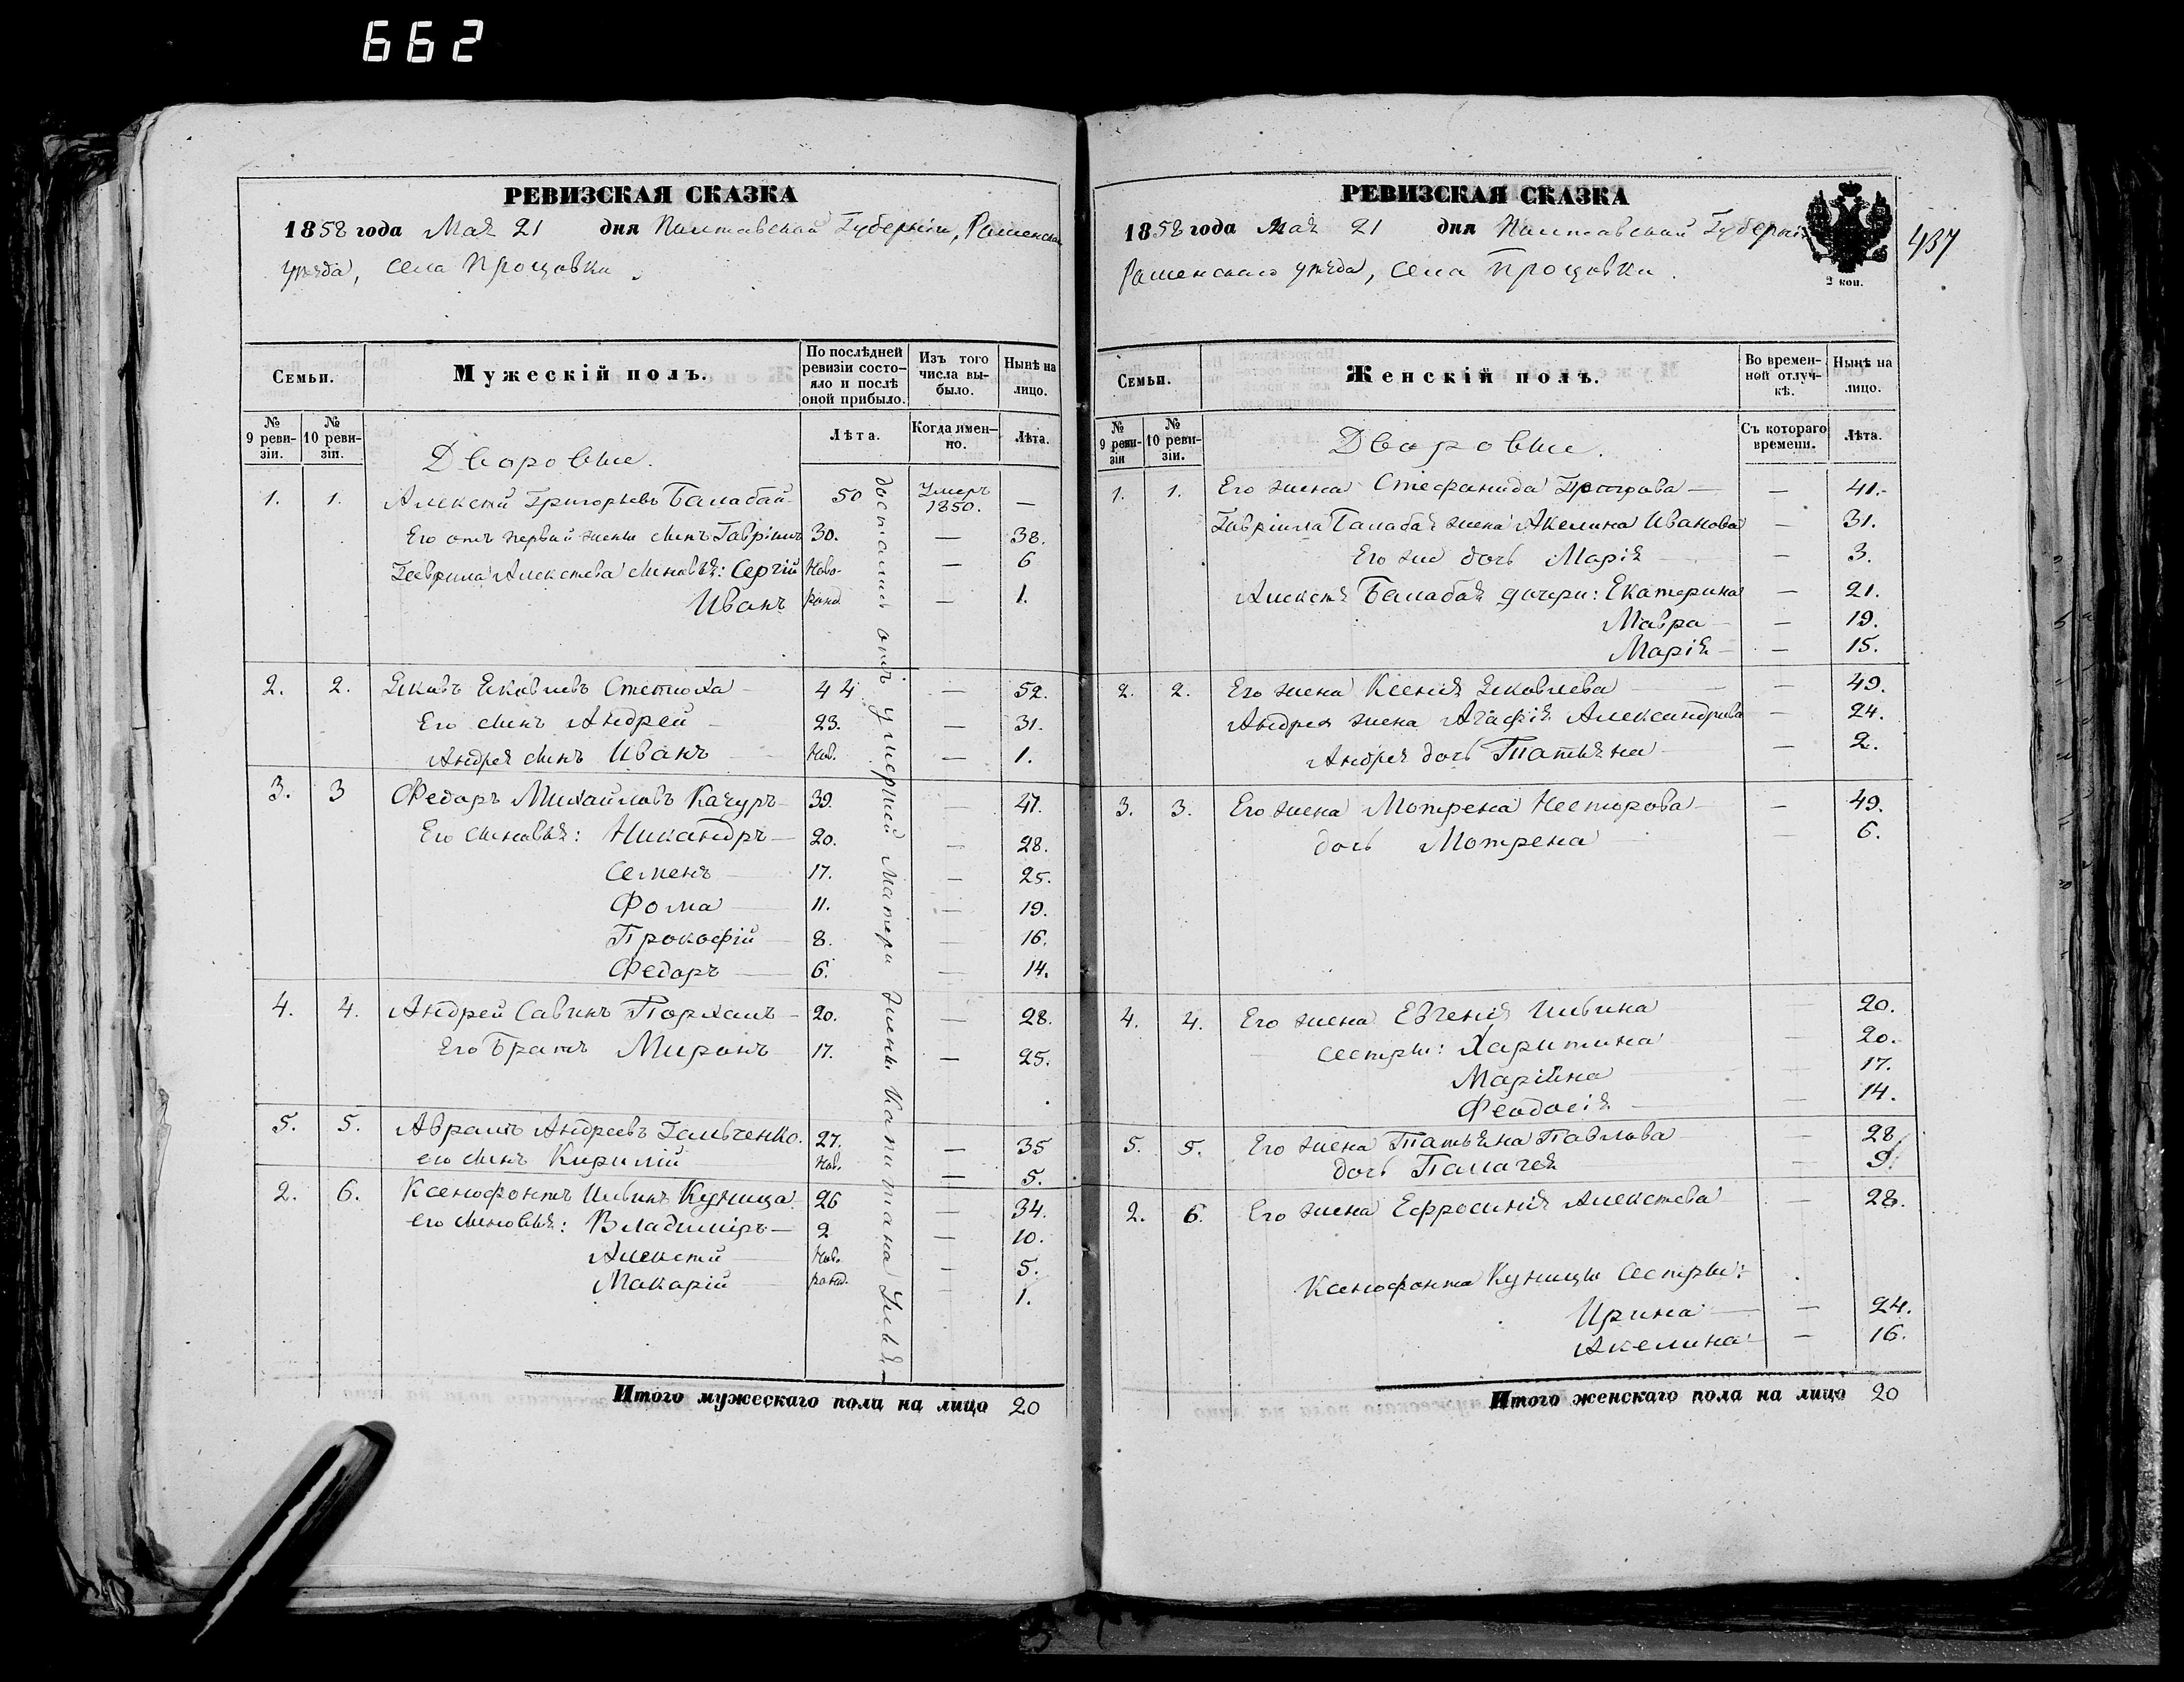 662
РЕВИЗСКАЯ СКАЗКА
1858 года Мая 21 дня Полтавской Губерніи, Роменскаго
уѣзда, села Процовки.
Семьи.
Мужескій полъ.
По послѣдней ревизіи состояло и послѣ оной прибыло.
Изъ того числа выбыло.
Нынѣ на лицо.
№ 9 ревизіи.
№ 10 ревизіи.
Лѣта.
Когда именно.
Лѣта.
Дворовые.
1. 1. Алексѣй Григорьевъ Балабай 50 Умеръ 1850. —
Его отъ первой жены сынъ Гавріилъ 30. — 38.
Гавріила Алексѣева сыновья: Сергій Ново- — 6
Иванъ рожд. — 1.
2. 2. Яковъ Яковлевъ Стетюха 44 — 52.
Его сынъ Андрей 23. — 31.
Андрея сынъ Иванъ Нов. — 1.
3. 3 Федоръ Михайловъ Качуръ 39. — 47.
Его сыновья: Никандръ 20. — 28.
Семенъ 17. — 25.
Фома 11. — 19.
Прокофій 8. — 16.
Федоръ 6. — 14.
4. 4. Андрей Савинъ Порхалъ 20. — 28.
Его братъ Миронъ 17. — 25.
5. 5. Аврамъ Андреевъ Гальченко. 27. — 35
его сынъ Кирилій Нов. — 5.
2. 6. Ксенофонтъ Ильинъ Куница 26 — 34.
его сыновья: Владиміръ 2 — 10.
Алексѣй Ново- — 5.
Макарій рожд. — 1.
достались отъ умершей матери жены Капитана
Итого мужескаго пола на лицо 20
РЕВИЗСКАЯ СКАЗКА
1858 года Мая 21 дня Полтавской Губерніи
Роменскаго уѣзда, села Процовки.
2 коп.
437
Семьи.
Женскій полъ.
Во временной отлучкѣ.
Нынѣ на лицо.
№ 9 ревизіи
№ 10 ревизіи.
Съ котораго времени.
Лѣта.
Дворовые.
1. 1. Его жена Стефанида Петрова — 41.
Гавріила Балабая жена Акелина Иванова — 31.
Его же дочь Марія — 3.
Алексѣя Балабая дочери: Екатерина — 21.
Мавра — 19.
Марія — 15.
2. 2. Его жена Ксенія Яковлева — 49.
Андрея жена Агафія Александрова — 24.
Андрея дочь Татьяна — 2.
3. 3. Его жена Мотрена Несторова — 49.
дочь Мотрена — 6.
4. 4. Его жена Евгенія Ильина — 20.
сестры: Харитина — 20.
Марійна — 17.
Феодосія — 14.
5. 5. Его жена Татьяна Павлова — 28
дочь Палагея — 9.
2. 6. Его жена Ефросинія Алексѣева — 28.
Ксенофонта Куницы сестры:
Ирина — 24.
Акелина — 16.
Итого женскаго пола на лицо 20